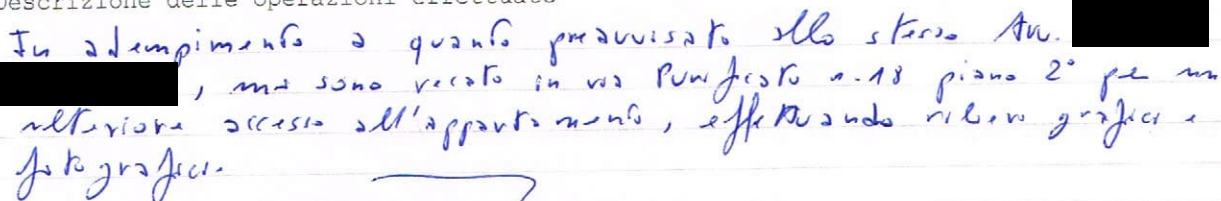 Descrizione delle operazioni effettuate
In adempimento a quanto preavvisato allo stesso Avv.
, mi sono recato in via Purificato n. 18 piano 2° per un
ulteriore accesso all'appartamento, effettuando rilievi grafici e
fotografici.